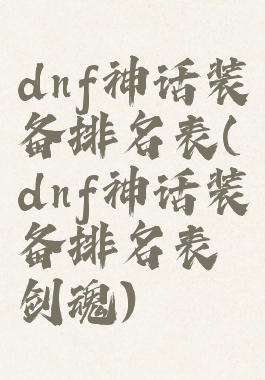 dnf神话装
备排名表(
dnf神话装
备排名表
剑魂)